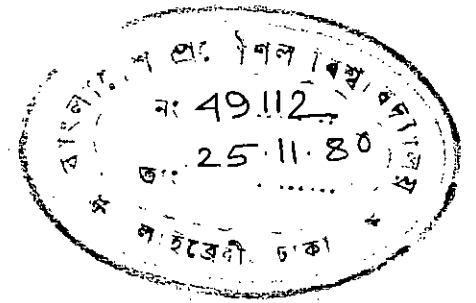 বাংলাদেশ প্রকৌশল বিশ্ববিদ্যালয়
নং 49112
তাং 25.11.80
লাইব্রেরী ঢাকা